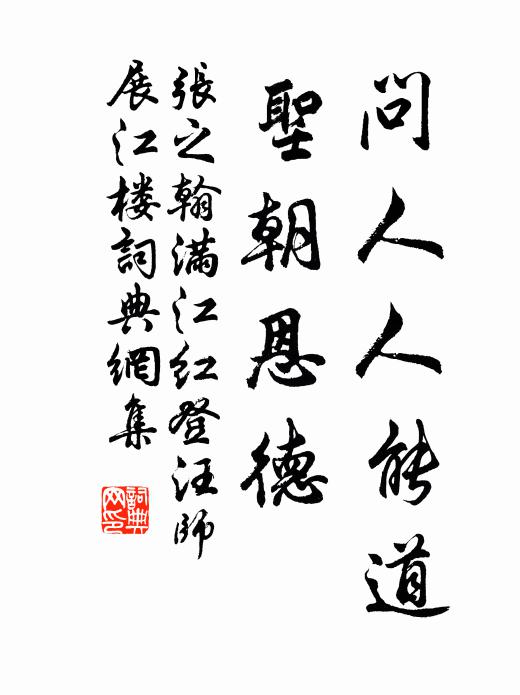 問人人能道
聖朝恩德
張之翰滿江红登汪師
展江楼詞典網集
詞典网印